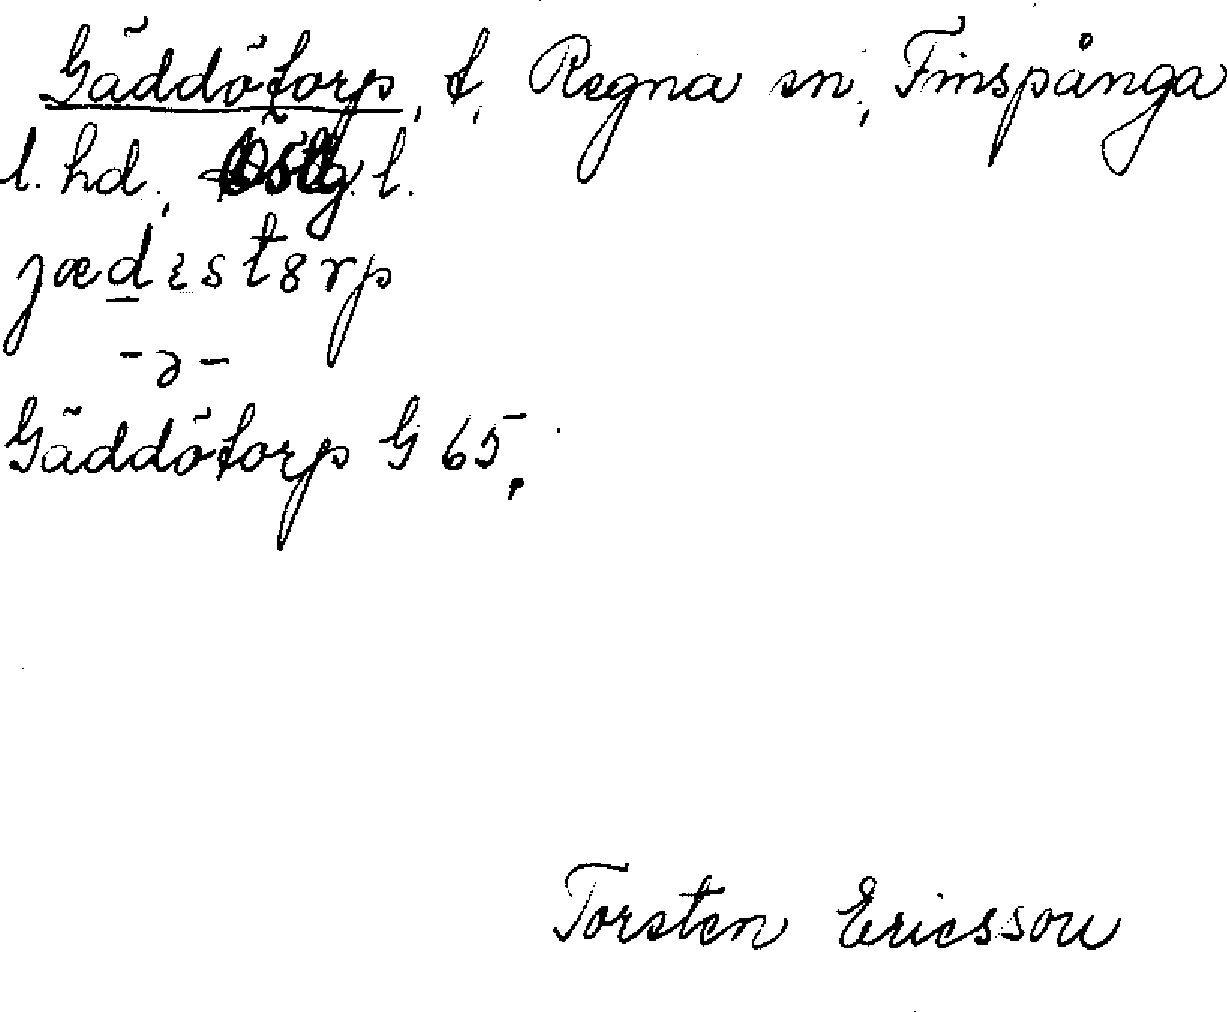 Gäddötorp, t, Regna sn, Finspånga
l. hd., Östg. l.
jædɩstȣrp
-ə-
Gäddötorp G 65,
Torsten Ericsson